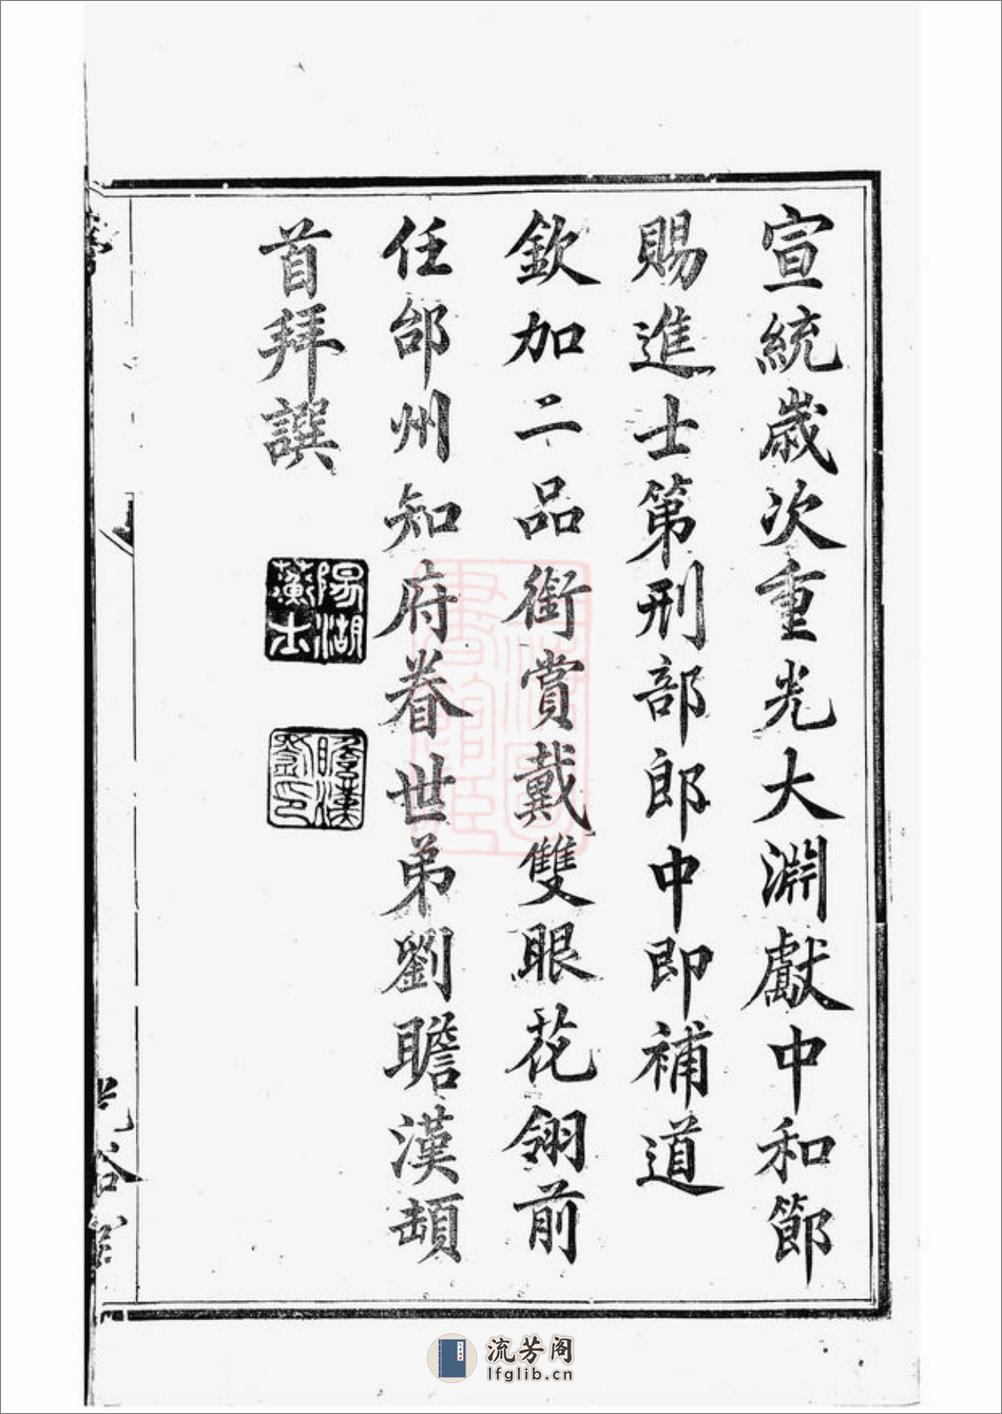 宣統歲次重光大淵獻中和節
賜進士第刑部郎中即補道
欽加二品銜賞戴雙眼花翎前
任邰州知府眷世弟劉瞻漢頓
首拜譔
陽湖
流芳阁
lfglib.cn